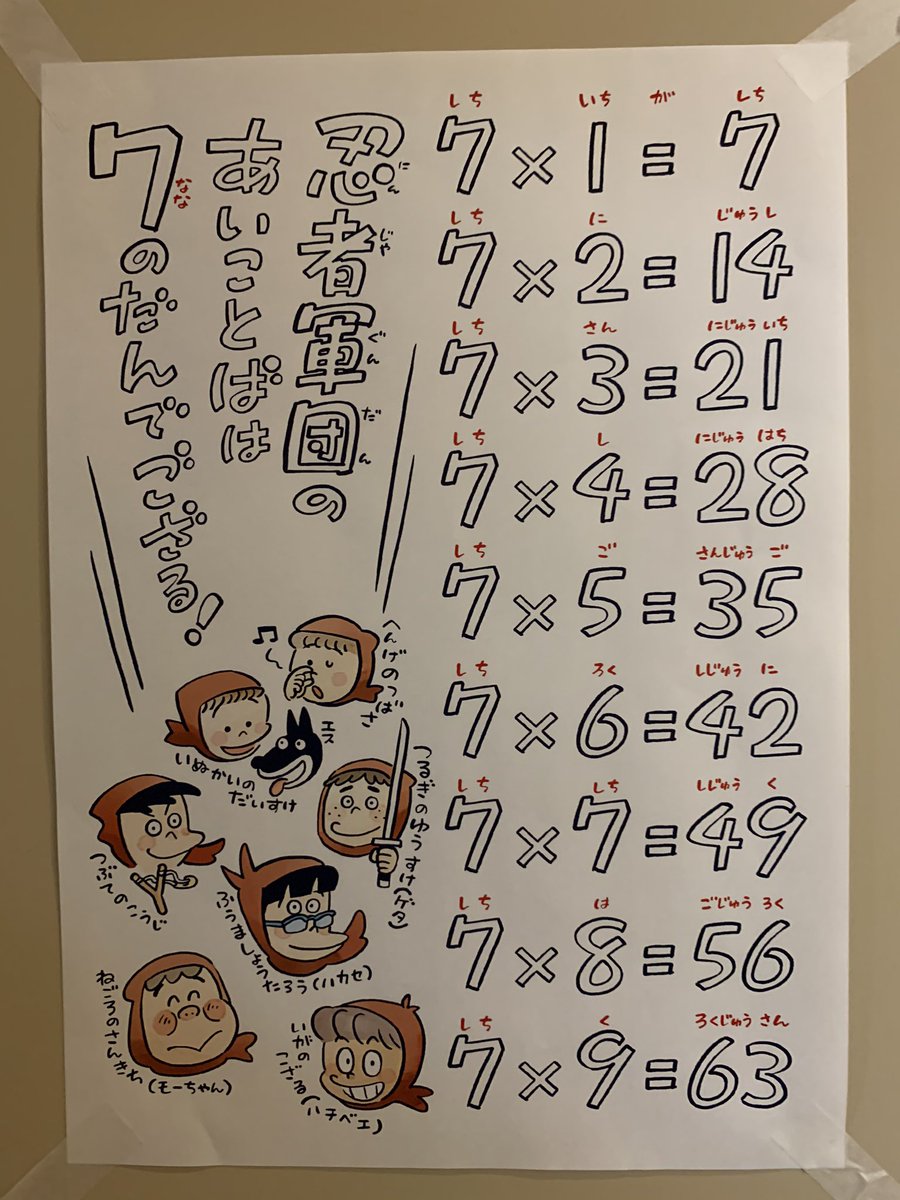 忍者軍団の
にんじゃぐんだん
あいことばは
7のだんでござる!
なな
しち いち が しち
7×1=7
しち に じゅうし
7×2=14
しち さん にじゅういち
7×3=21
しち し にじゅうはち
7×4=28
しち ご さんじゅうご
7×5=35
しち ろく しじゅうに
7×6=42
しち しち しじゅうく
7×7=49
しち は ごじゅうろく
7×8=56
しち く ろくじゅうさん
7×9=63
へんげのつばさ
いぬかいの
だいすけ
エス
つるぎのゆうすけ(ゲタ)
つぶてのこうじ
ふうましょう
たろう(ハカセ)
ねごろのさんきち
(モーちゃん)
いがの
こざる
(ハチベエ)